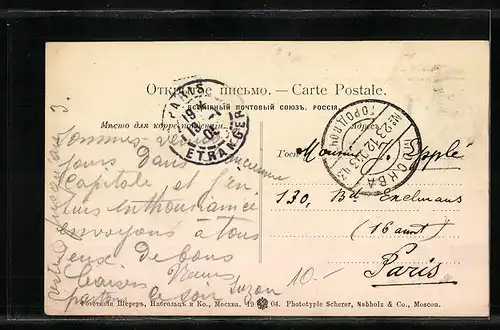 Открытое письмо. — Carte Postale.
ВСЕМІРНЫЙ ПОЧТОВЫЙ СОЮЗЪ. РОССІЯ.
Мѣсто для корреспонденціи.
Адресъ.
PARIS
ETRANGER
МОСКВА
3.
Sommes
jours dans ancienne
Capitale et j'en
suis enthousiasmée
envoyons à tous
deux de bons
baisers
partons ce soir Suzon
Monsieur J. Epplé
130, Bd Exelmans
(16 arrt)
Paris
10.-
Фототипія Шереръ, Набгольцъ и Ко., Москва. 19 04. Phototypie Scherer, Nabholz & Co., Moscou.